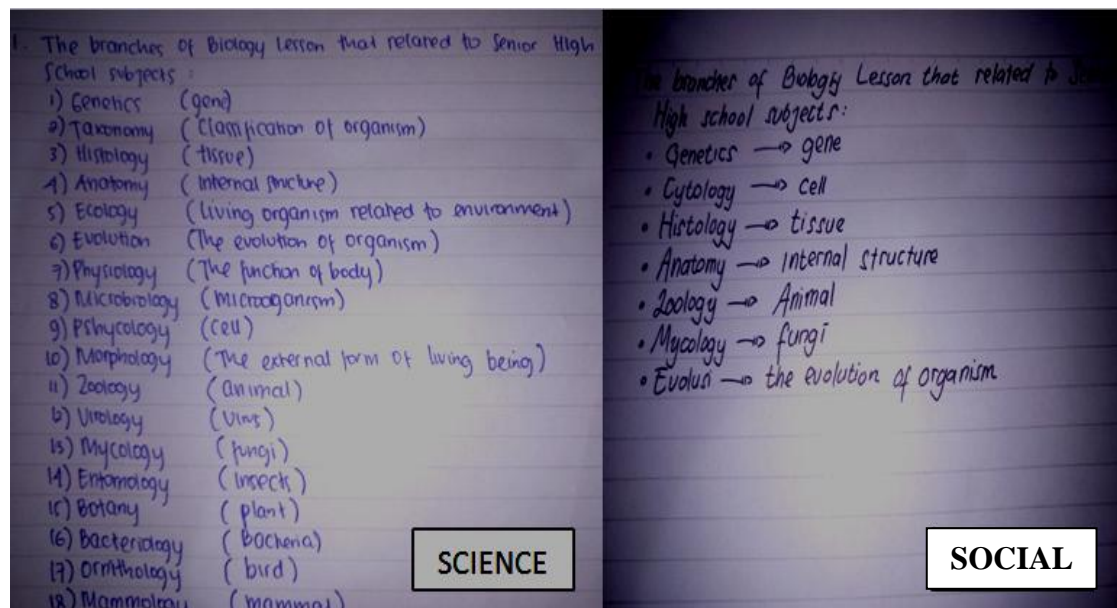 1. The branches of Biology Lesson that related to Senior High
School subjects :
1) Genetics (gene)
2) Taxonomy (Classification of organism)
3) Histology (tissue)
4) Anatomy (Internal structure)
5) Ecology (Living organism related to environment)
6) Evolution (The evolution of organism)
7) Physiology (The function of body)
8) Microbiology (microoganism)
9) Pshycology (cell)
10) Morphology (The external form of living being)
11) Zoology (animal)
12) Virology (virus)
13) Mycology (fungi)
14) Entomology (insects)
15) Botany (plant)
16) Bacteriology (Bacheria)
17) Ornithology (bird)
18) Mammology (mammal)
SCIENCE
The brancher of Biology Lesson that related to
High school subjects:
• Genetics → gene
• Cytology → cell
• Histology → tissue
• Anatomy → internal structure
• Zoology → Animal
• Mycology → fungi
• Evolusi → the evolution of organism
SOCIAL